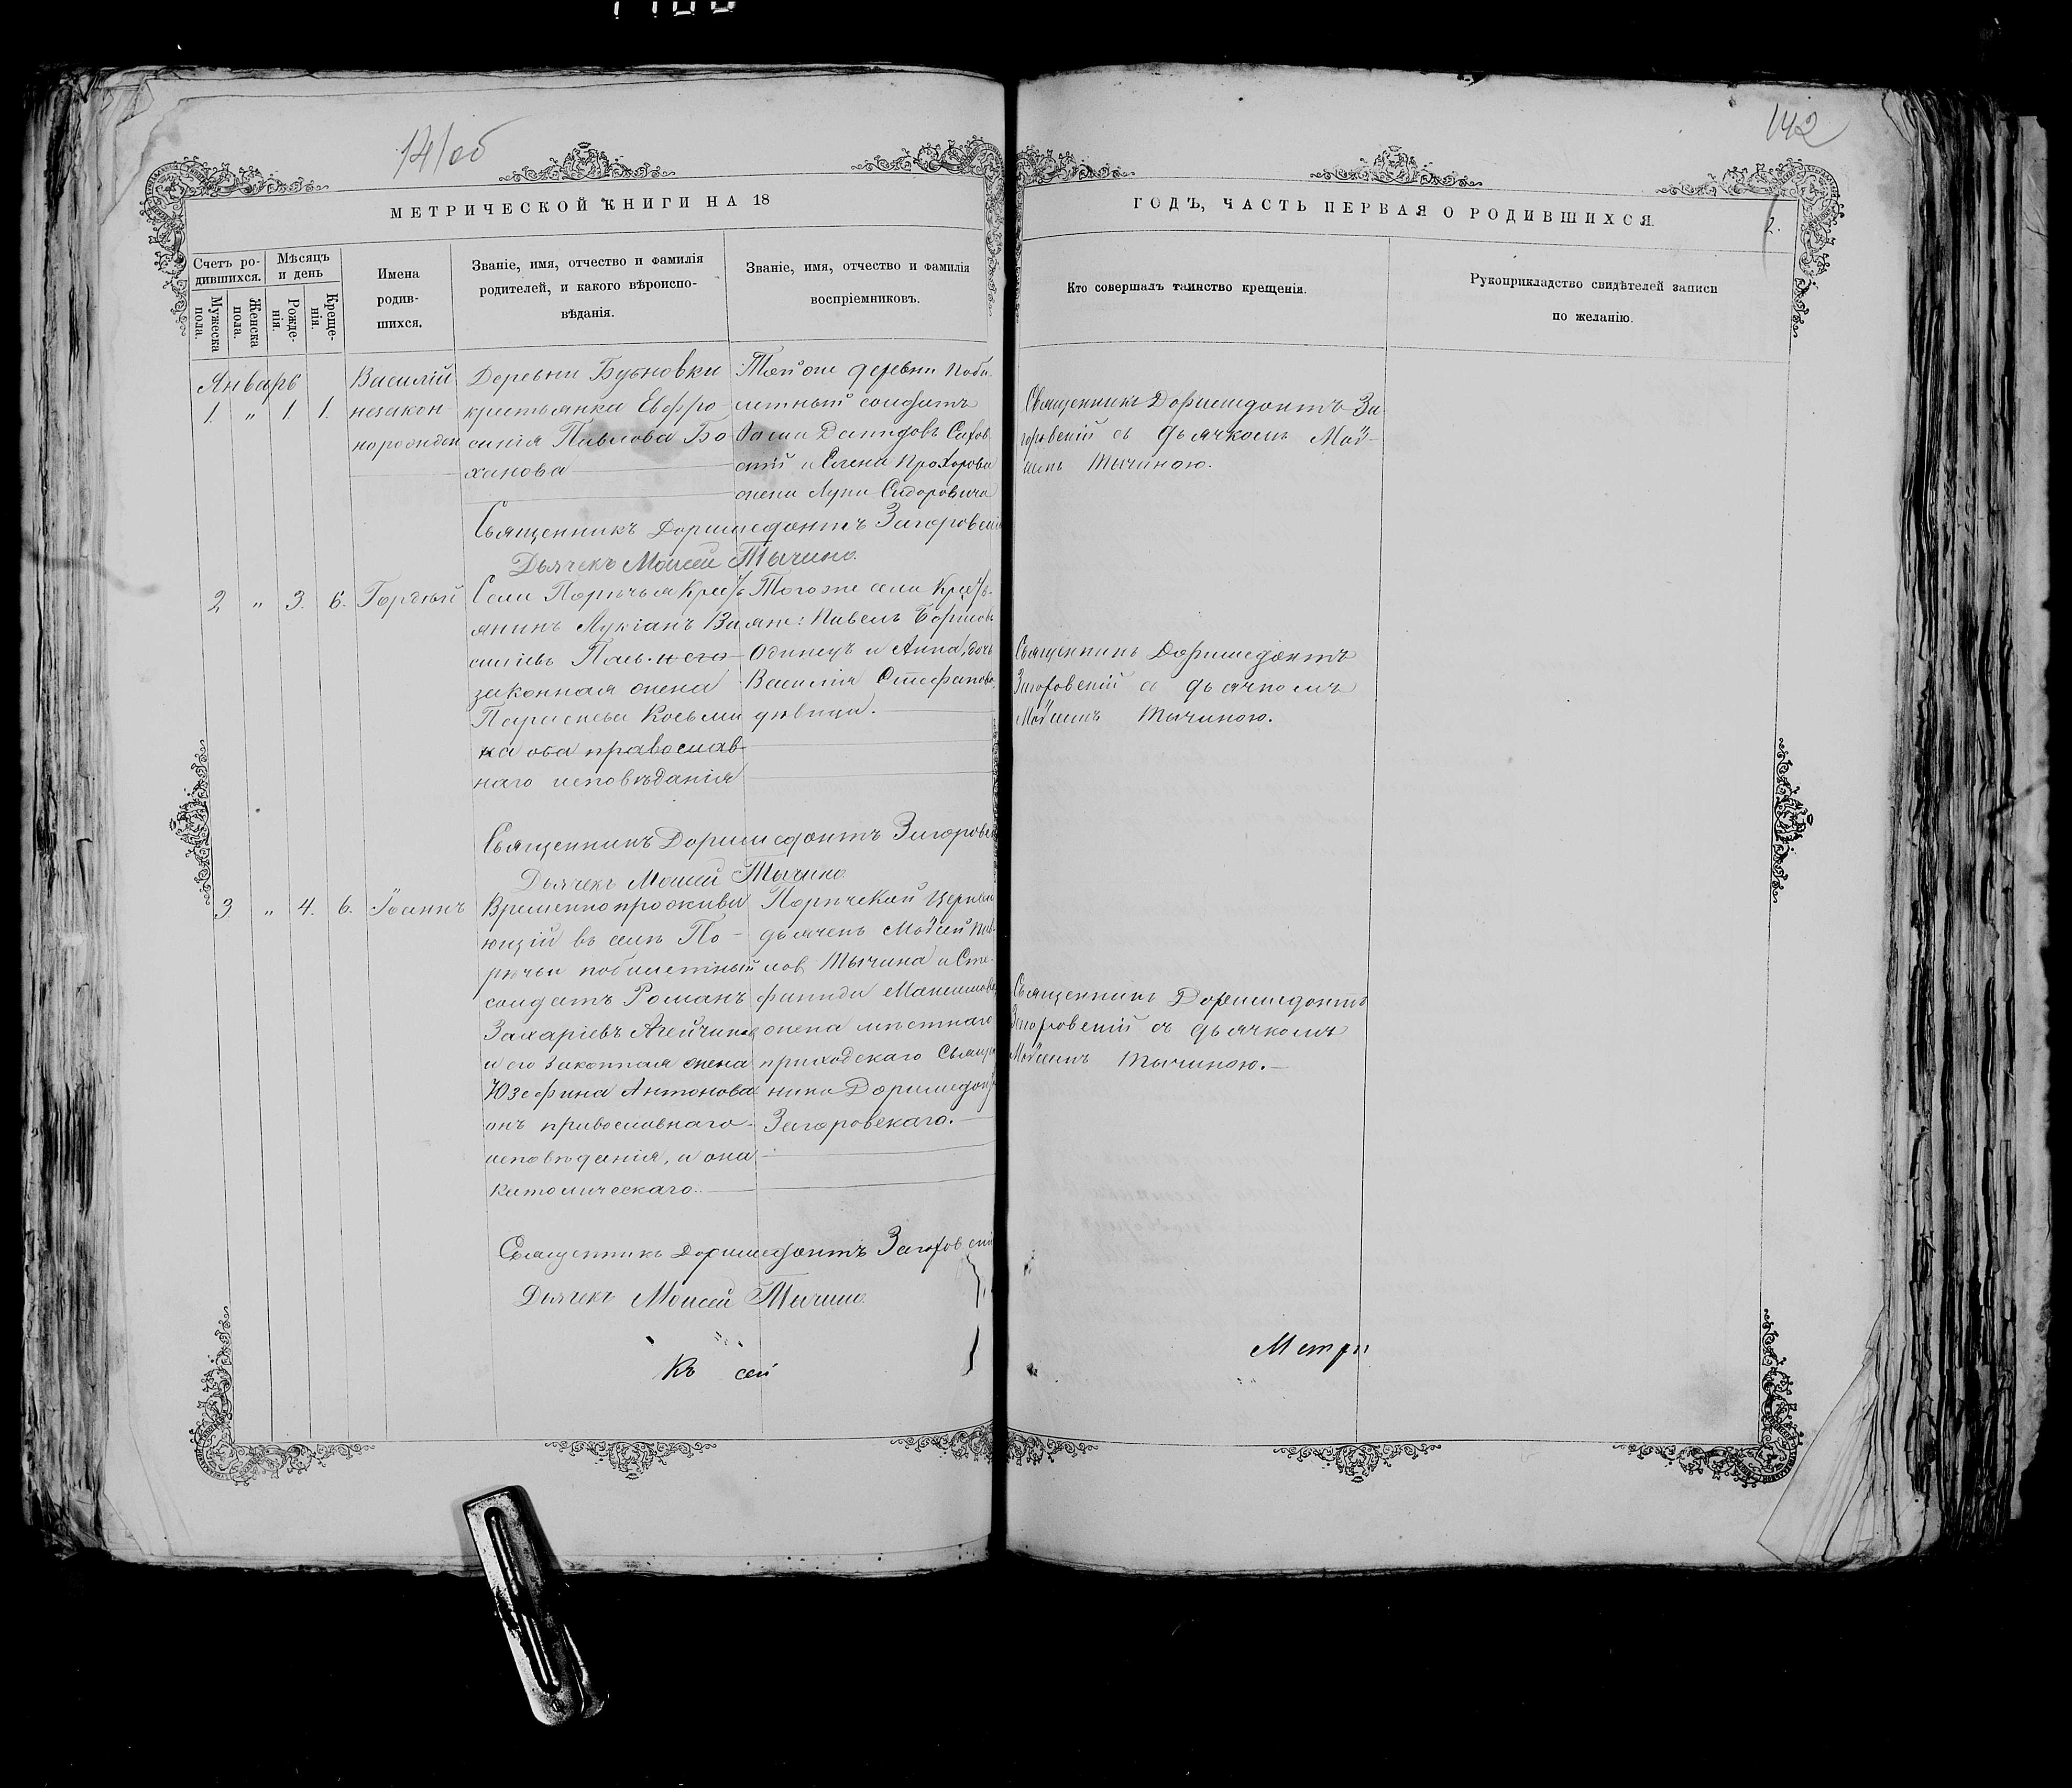 141 об
142
МЕТРИЧЕСКОЙ КНИГИ НА 18
ГОДЪ, ЧАСТЬ ПЕРВАЯ О РОДИВШИХСЯ.
2.
Счетъ ро-
дившихся.
Мѣсяцъ
и день
Мужеска
пола.
Женска
пола.
Рожде-
нія.
Креще-
нія.
Имена
родив-
шихся.
Званіе, имя, отчество и фамилія
родителей, и какого вѣроиспо-
вѣданія.
Званіе, имя, отчество и фамилія
воспріемниковъ.
Кто совершалъ таинство крещенія.
Рукоприкладство свидѣтелей записи
по желанію.
Январь
1. " 1. 1.
Василій
незакон
норожден
Деревни
крестьянка Евфро
синія Павлова Бо
ханова
Тойже деревни поби-
летный солдатъ
Давидовъ
и Елена Прохорова
жена Лупы Сидоровича
Священникъ Доримедонтъ За
горовскій съ дьячкомъ Мой-
сеемъ Тычиною.
Священникъ Доримедонтъ Загоровскій
Дьячекъ Моисей Тычино.
2 " 3. 6. Гордѣй
Села Порѣчья Крестъ
янинъ Лукіанъ Ва
сильевъ его
законная жена
Параскева Косьми
на оба православ-
наго исповѣданія
Тогоже села Крестъ-
яне: Павелъ
Одинецъ и Анна, дочь
Василія Стефанова
дѣвица.
Священникъ Доримедонтъ
Загоровскій съ дьячкомъ
Мойсеемъ Тычиною.
Священникъ Доримедонтъ Загоровскій
Дьячекъ Моисей Тычино
3 " 4. 6. Іоаннъ
Временно прожива
ющій въ селѣ По-
рѣчьи побилетный
солдатъ Романъ
Захаріевъ
и его законная жена
Юзефина Антонова
онъ православнаго
исповѣданія, и она
католическаго.
Порѣчской Церкви
дьячекъ Мойсей Пав-
лов Тычина и Сте-
фанида Максимова
жена мѣстнаго
приходскаго Священ
ника Доримедонта
Загоровскаго.
Священникъ Доримедонтъ
Загоровскій съ дьячкомъ
Мойсеемъ Тычиною.
Священникъ Доримедонтъ Загоровскій
Дьячекъ Моисей Тычино.
Къ сей
Метри